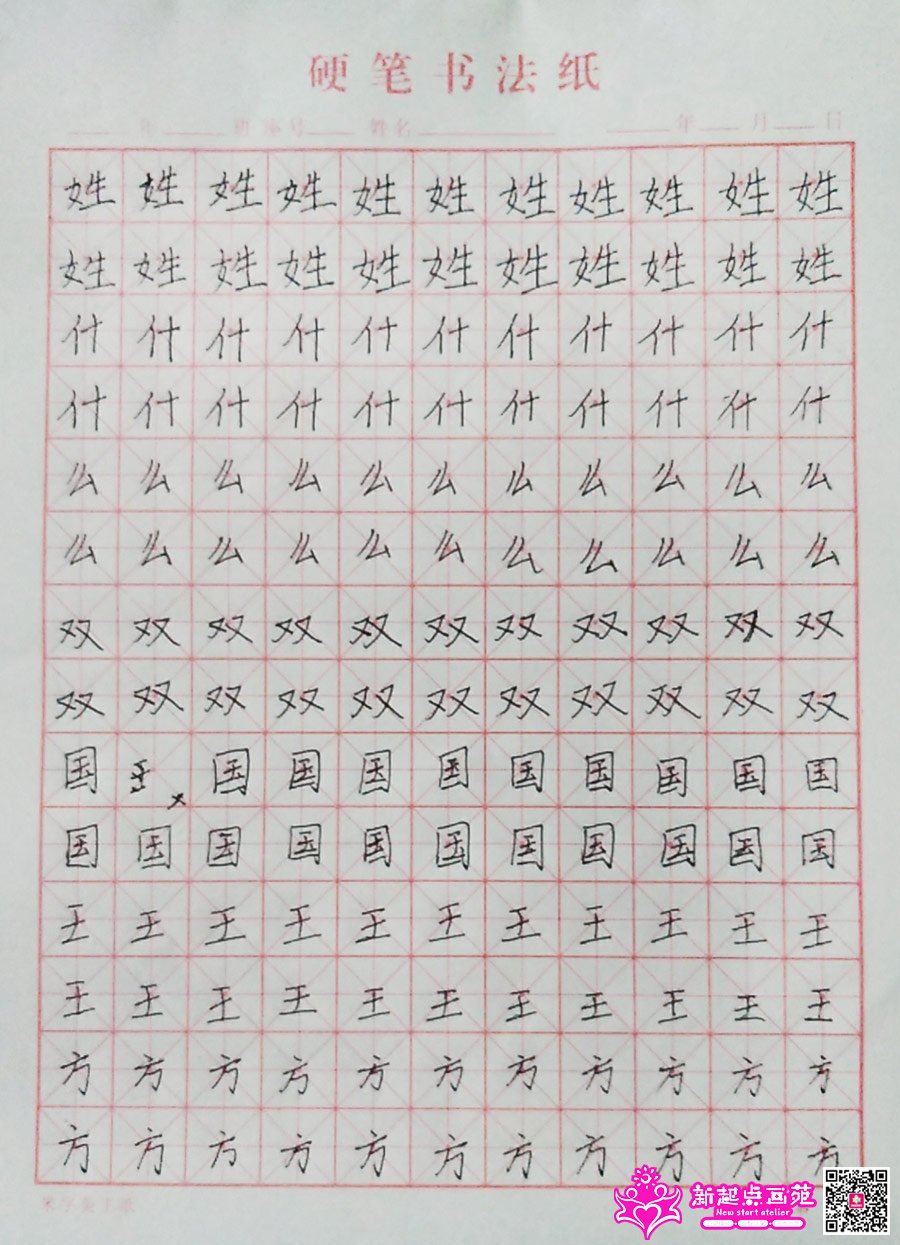 硬笔书法纸
年 班 座号 姓名 年 月 日
姓 姓 姓 姓 姓 姓 姓 姓 姓 姓 姓
姓 姓 姓 姓 姓 姓 姓 姓 姓 姓 姓
什 什 什 什 什 什 什 什 什 什 什
什 什 什 什 什 什 什 什 什 什 什
么 么 么 么 么 么 么 么 么 么 么
么 么 么 么 么 么 么 么 么 么 么
双 双 双 双 双 双 双 双 双 双 双
双 双 双 双 双 双 双 双 双 双 双
国 国 国 国 国 国 国 国 国 国
国 国 国 国 国 国 国 国 国 国 国
王 王 王 王 王 王 王 王 王 王 王
王 王 王 王 王 王 王 王 王 王 王
方 方 方 方 方 方 方 方 方 方 方
方 方 方 方 方 方 方 方 方 方 方
新起点画苑
New start atelier